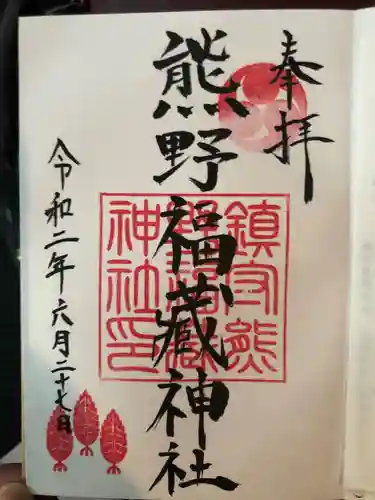 奉拝
熊野福藏神社
鎮守熊
野福藏
神社印
令和二年六月二十七日